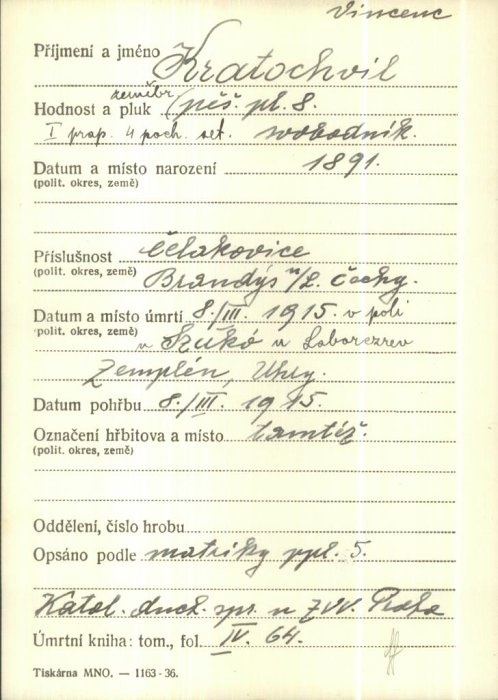 Vincenc
Příjmení a jméno Kratochvil
zeměbr.
Hodnost a pluk (pěš. pl. 8.
I prap. 4 poch. set. svobodník.
Datum a místo narození 1891.
(polit. okres, země)
Příslušnost Čelakovice
(polit. okres, země) Brandýs n/L. Čechy.
Datum a místo úmrtí 8./III. 1915. v poli
(polit. okres, země) u Szúkó u Laborczrev
Zemplén, Uhry.
Datum pohřbu 8./III. 1915.
Označení hřbitova a místo tamtéž.
(polit. okres, země)
Oddělení, číslo hrobu
Opsáno podle matriky ppl. 5.
Katol. duch. spr. u ZVV. Praha
Úmrtní kniha: tom., fol. IV. 64.
Tiskárna MNO. — 1163-36.